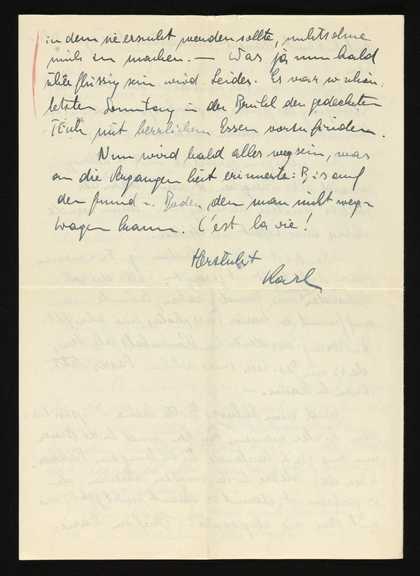 in dem sie ersucht werden sollte, nichts ohne
mich zu machen. — Was ja nun bald
überflüssig sein wird leider. Es war so schön
letzten Sonntag in der Brühl den gedeckten
Tisch mit herrlichem Essen vorzufinden.
Nun wird bald alles weg sein, was
an die Vergangenheit erinnerte: Bis auf
den Grund u. Boden, den man nicht weg-
tragen kann. C'est la vie!
Herzlichst
Karl